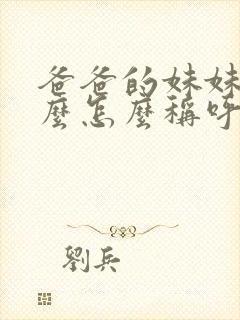 爸爸的妹妹
麼怎麼稱呼
劉兵